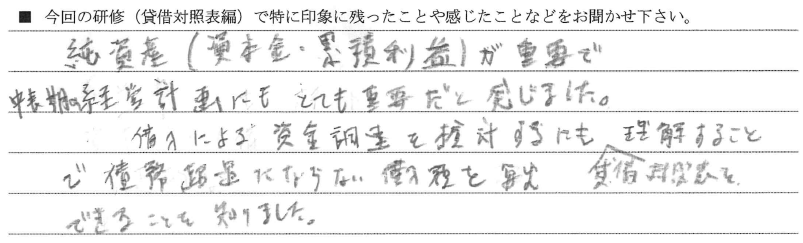 ■ 今回の研修（貸借対照表編）で特に印象に残ったことや感じたことなどをお聞かせ下さい。
純資産（資本金・累積利益）が重要で
中長期の経営計画にもとても重要だと感じました。
借入による資金調達を検討するにも 貸借対照表を 理解すること
で債務超過にならない借入額を算出
できることを知りました。